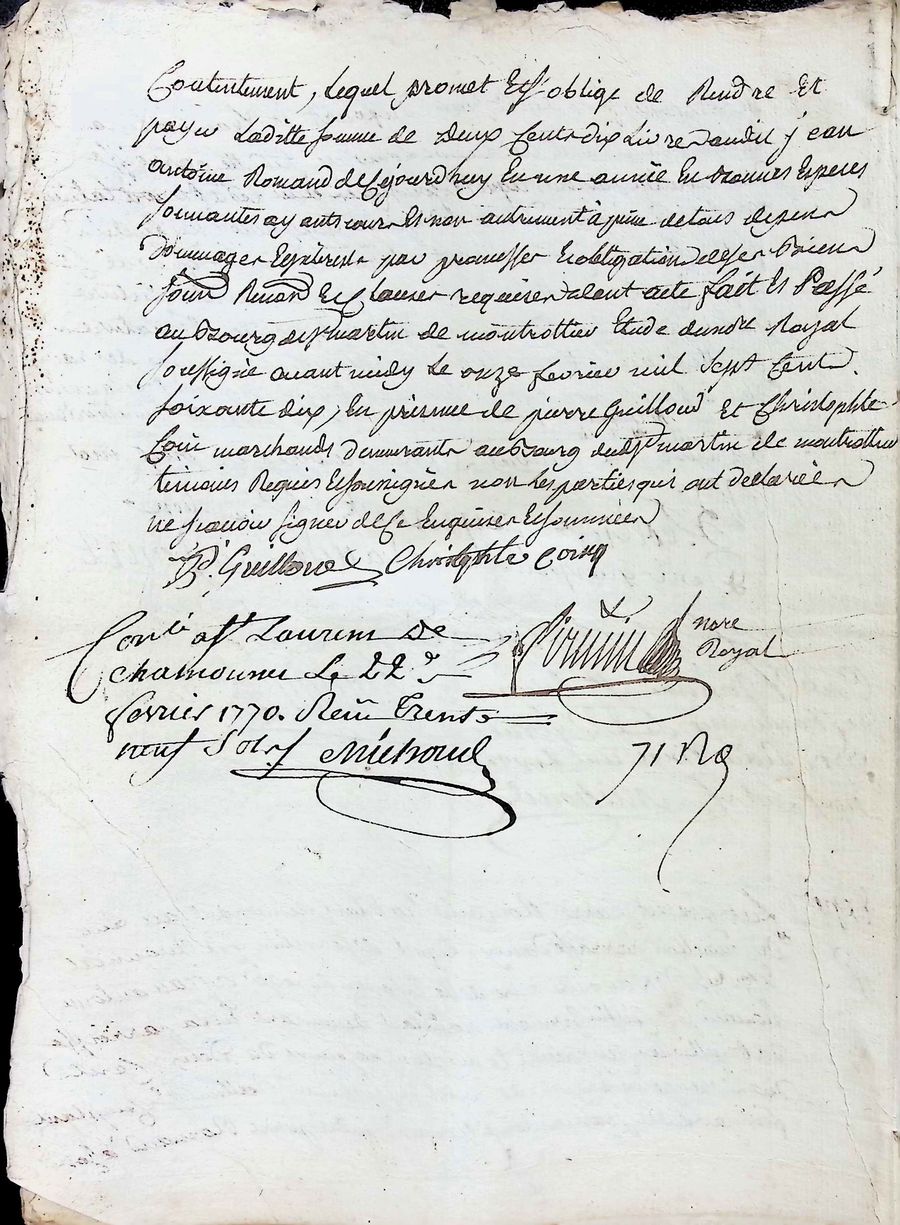 Contentement, lequel promet Et s'oblige de Rendre Et
payer Laditte somme de Deux Cents dix Livres audit jean
antoine Romand de Cejourdhuy En une année En bonnes Especes
sonnantes ayants cours Et non autrement à peine de tous depens
Dommages Esinterests par promesses Et obligation de ses Biens
soumis Renond Et Clauses requises dont acte fait Et Passé
au Bourg de st martin de montrottier Etude du nore Royal
soussigné avant midy Le onze fevrier mil sept Cent
soixante dix, En presence de pierre Guilloud Et Christophle
Coin marchands demeurants au Bourg dudt st martin de montrottier
temoins Requis Et soussignés non les parties qui ont declarées
ne sçavoir signer de Ce Enquises Et sommées
P. Guilloud Christophle Coin
nore
Royal
Conlé a st Laurent De
chamousset Le 22e
fevrier 1770. Reçu Trente
neuf Sols Michoud